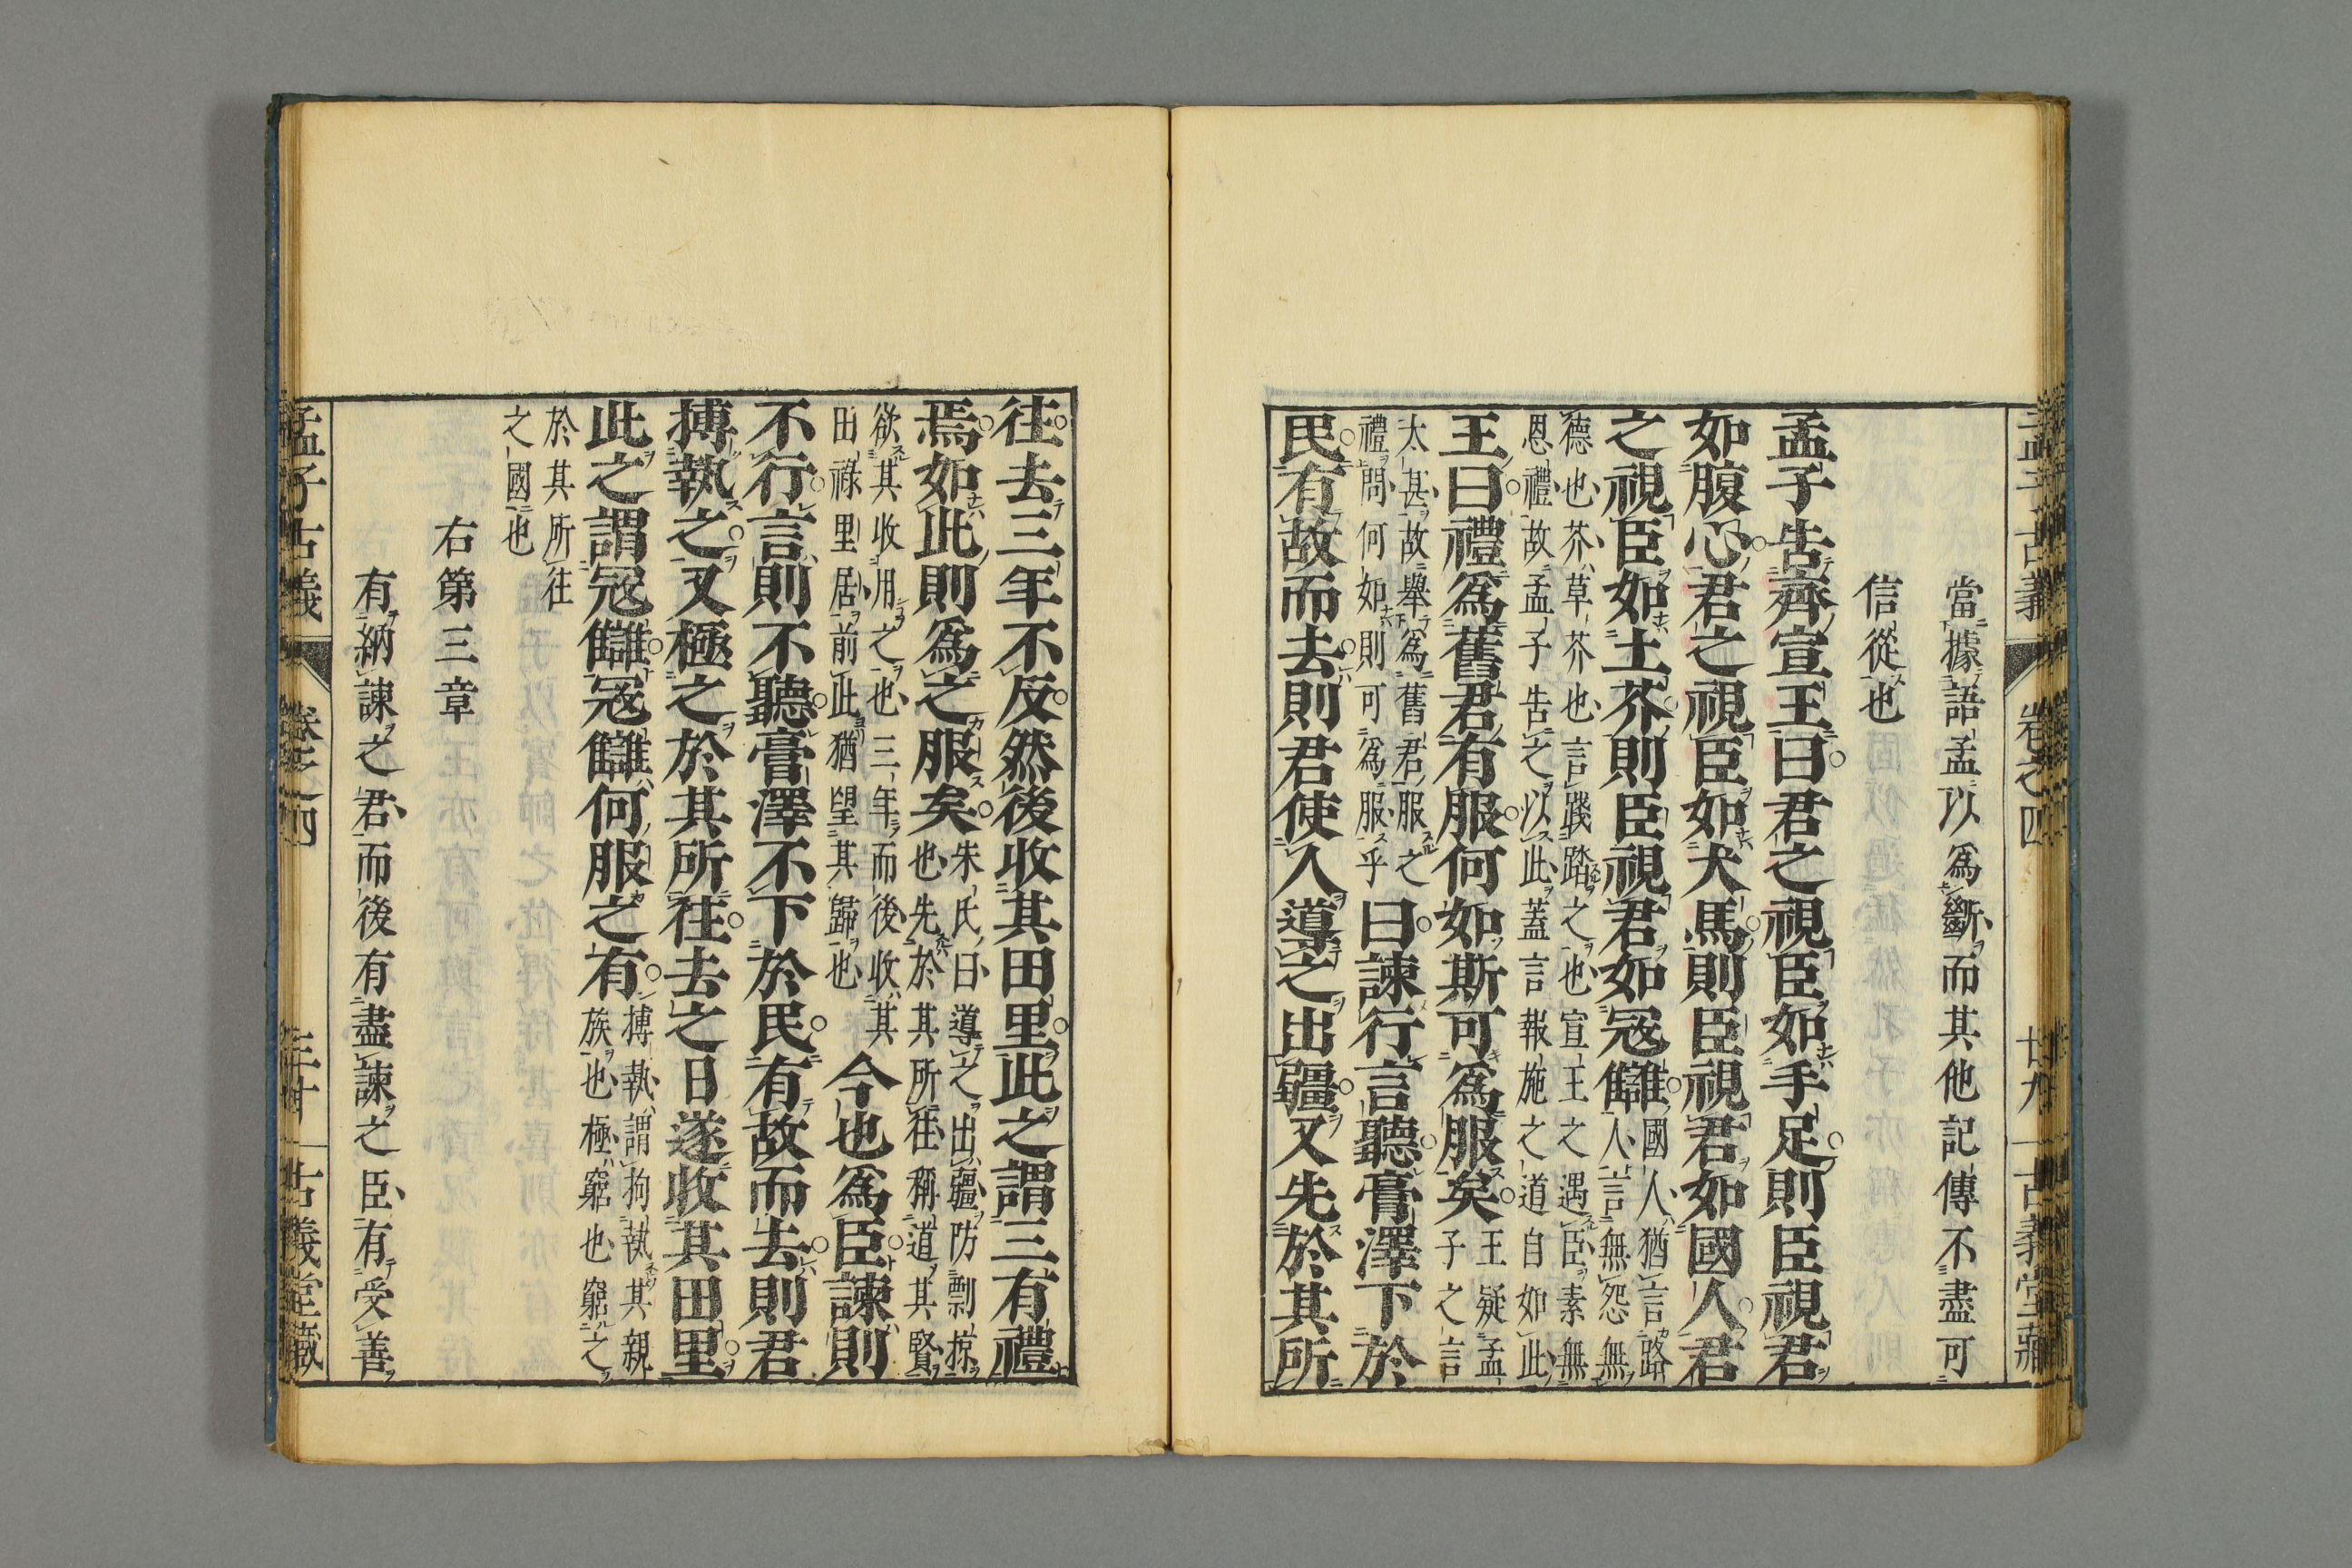 孟子古義 卷之四 廿九 古義堂藏
當據語孟以爲斷而其他記傳不盡可
信從也
孟子告齊宣王曰君之視臣如手足則臣視君
如腹心君之視臣如犬馬則臣視君如國人君
之視臣如土芥則臣視君如冦讎
國人猶言路
人言無怨無
德也芥草芥也言踐踏之也宣王之遇臣素無
恩禮故孟子告之以此蓋言報施之道自如此
王曰禮爲舊君有服何如斯可爲服矣
王疑孟
子之言
太甚故舉爲舊君服之
禮問何如則可爲服乎
曰諫行言聽膏澤下於
民有故而去則君使人導之出疆又先於其所
往去三年不反然後收其田里此之謂三有禮
焉如此則爲之服矣
朱氏曰導之出疆防剽掠
也先於其所往稱道其賢
欲其收用之也三年而後收其
田祿里居前此猶望其歸也
今也爲臣諫則
不行言則不聽膏澤不下於民有故而去則君
搏執之又極之於其所往去之日遂收其田里
此之謂冦讎冦讎何服之有
搏執謂拘執其親
族也極窮也窮之
於其所往
之國也
右第三章
有納諫之君而後有盡諫之臣有受善
孟子古義 卷之四 三十 古義堂藏